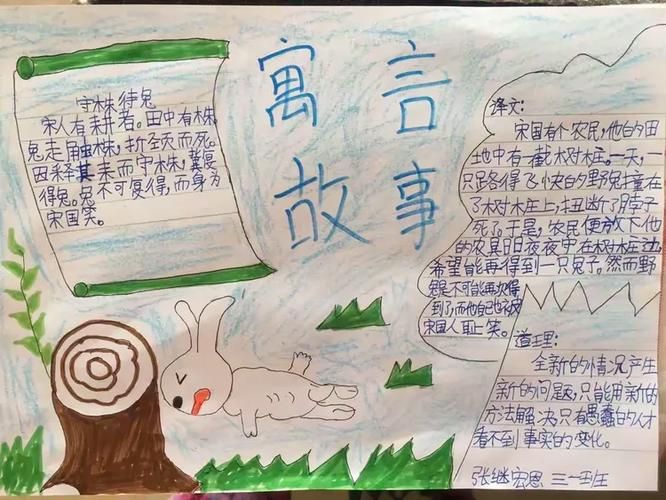 寓言
故事
守株待兔
宋人有耕者。田中有株,
兔走触株,折颈而死。
因释其耒而守株,冀复
得兔。兔不可复得,而身为
宋国笑。
译文:
宋国有个农民,他的田
地中有一截树桩。一天,一
只跑得飞快的野兔撞在
了树桩上,扭断了脖子
死了。于是,农民便放下他
的农具日日夜夜守在树桩边,
希望能再得到一只兔子。然而野
兔是不可能再次得
到了,而他自己也被
宋国人耻笑。
道理:
全新的情况产生
新的问题,只能用新的
方法解决,只有愚蠢的人才
看不到事实的变化。
张继宏恩 三一班